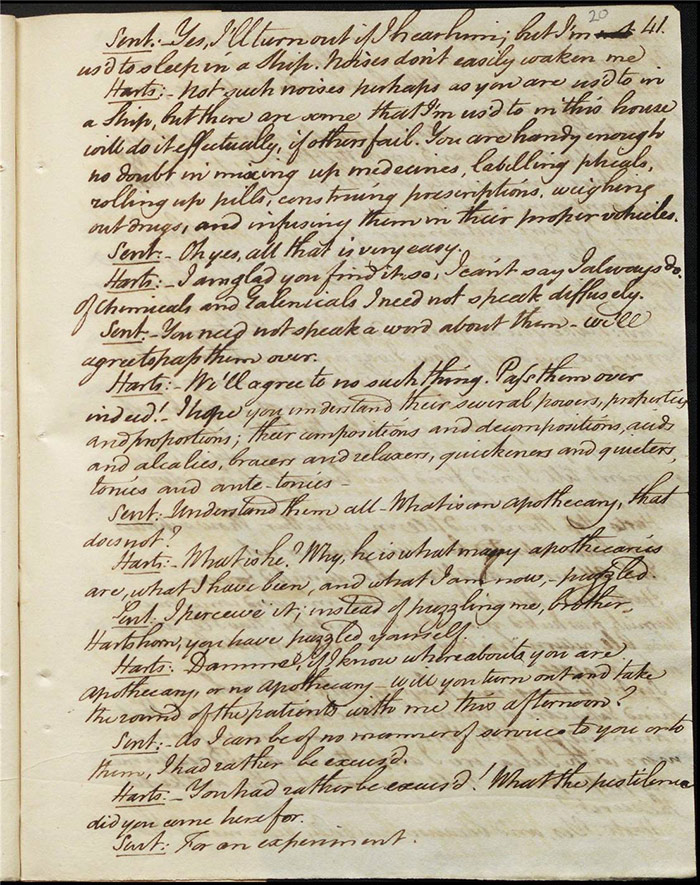 20
Sent:- Yes, I'll turn out if I hear him; but I'm not 41.
us'd to sleep in a Ship. Noises don't easily waken me
Harts:- Not such noises perhaps as you are us'd to in
a Ship, but there are some that I'm us'd to in this house
will do it effectually, if others fail. You are handy enough
no doubt in mixing up medicines, labelling phials,
rolling up pills, construing prescriptions, weighing
out drugs, and infusing them in their proper vehicles.
Sent:- Oh yes, all that is very easy.
Harts:- I am glad you find it so, I can't say I always do.
Of Chemicals and Galenicals I need not speak diffusely.
Sent:- You need not speak a word about them - we'll
agree to pass them over.
Harts:- We'll agree to no such thing. Pass them over
indeed! - I hope you understand their several powers, properties
and proportions; their compositions and decompositions, acids
and alcalies, bracers and relaxers, quickeners and quieters
tonics and ante-tonics -
Sent: Understand them all - What is an apothecary, that
does not?
Harts:- What is he? Why, he is what many apothecaries
are, what I have been, and what I am now, - puzzled.
Sent: I perceive it; instead of puzzling me, brother
Hartshorn, you have puzzled yourself.
Harts: Damme, if I know whereabouts you are
apothecary, or no apothecary - will you turn out and take
the round of the patients with me this afternoon?
Sent:- As I can be of no manner of service to you or to
them, I had rather be excus'd.
Harts:- You had rather be excus'd! What the pestilence
did you come here for.
Sent: For an experiment.